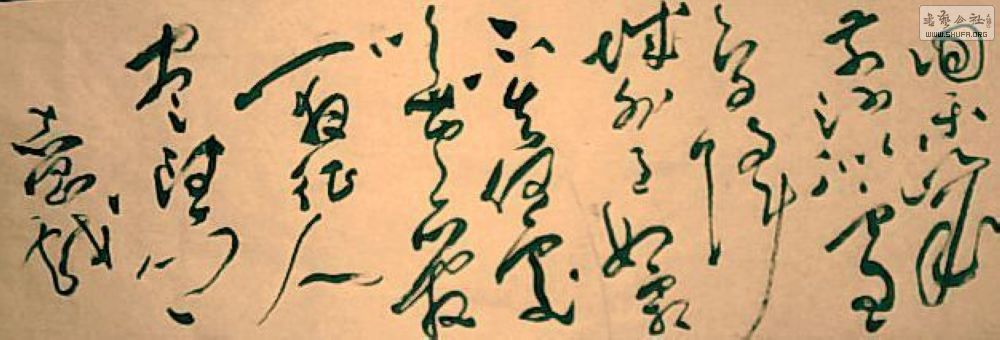 書藝公社
WWW.SHUFA.ORG
回乐峰
前沙似雪
受降
城外月如霜
不知何处
吹芦管
一夜征人
尽望乡